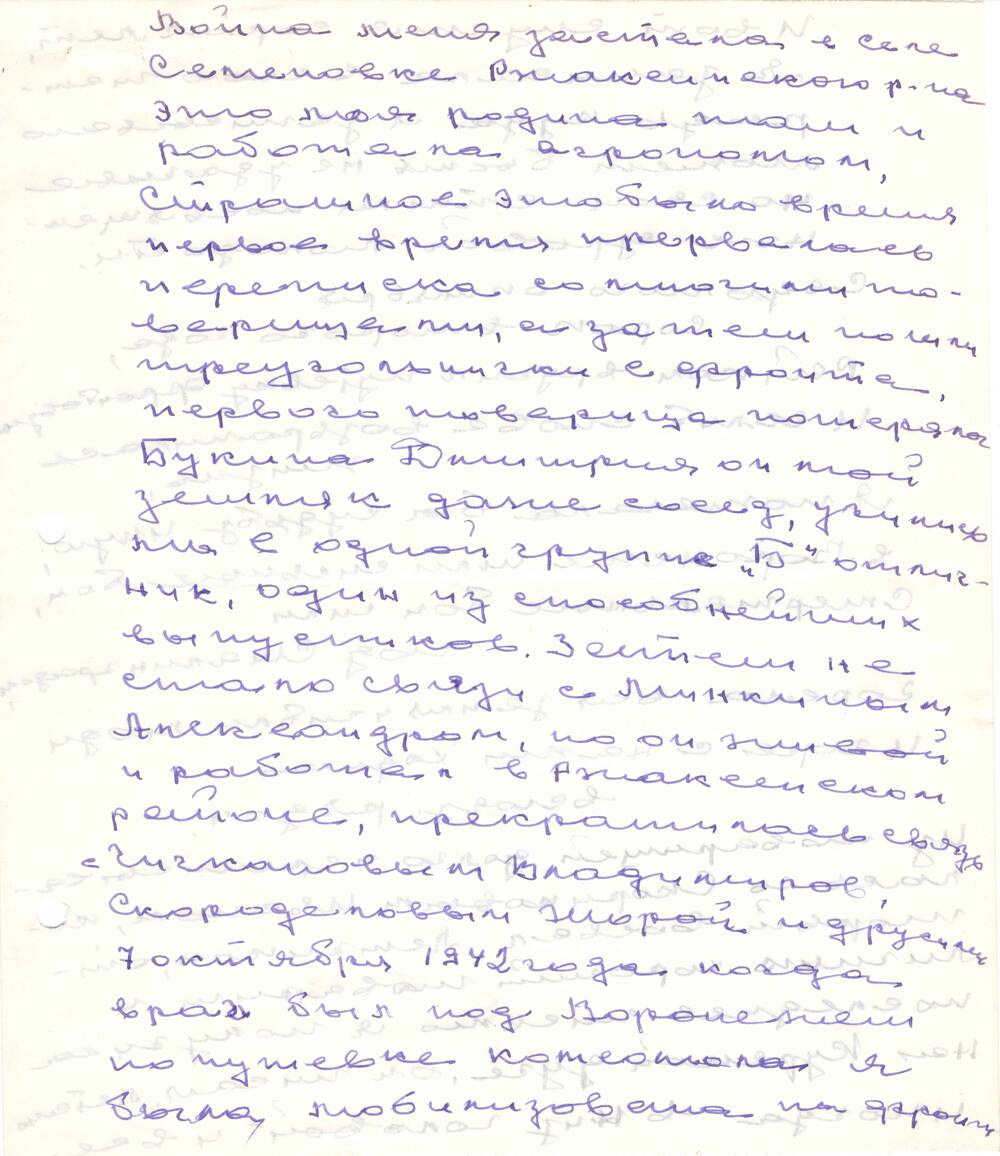 Война меня застала в селе
Семеновке Ржаксинского р-на
это моя родина там и
работала агрономом,
Страшное это было время
первое время прервалась
переписка со многими то-
варищами, а затем пошли
треугольнички с фронта,
первого товарища потеряла
Букина Дмитрия он мой
земляк даже сосед, учились
мы в одной группе „Б“ отлич-
ник, один из способнейших
выпусников. Зетем не
стало связи с Минкиным
Александром, но он живой
и работал в Ржаксенском
районе, прекратилась связь
с Чичкановым Владимиров,
Скороделовым Жорой и другими
7 октября 1942 года когда
враг был под Воронежем
по путевке комсомола я
была, мобилизована на фронт